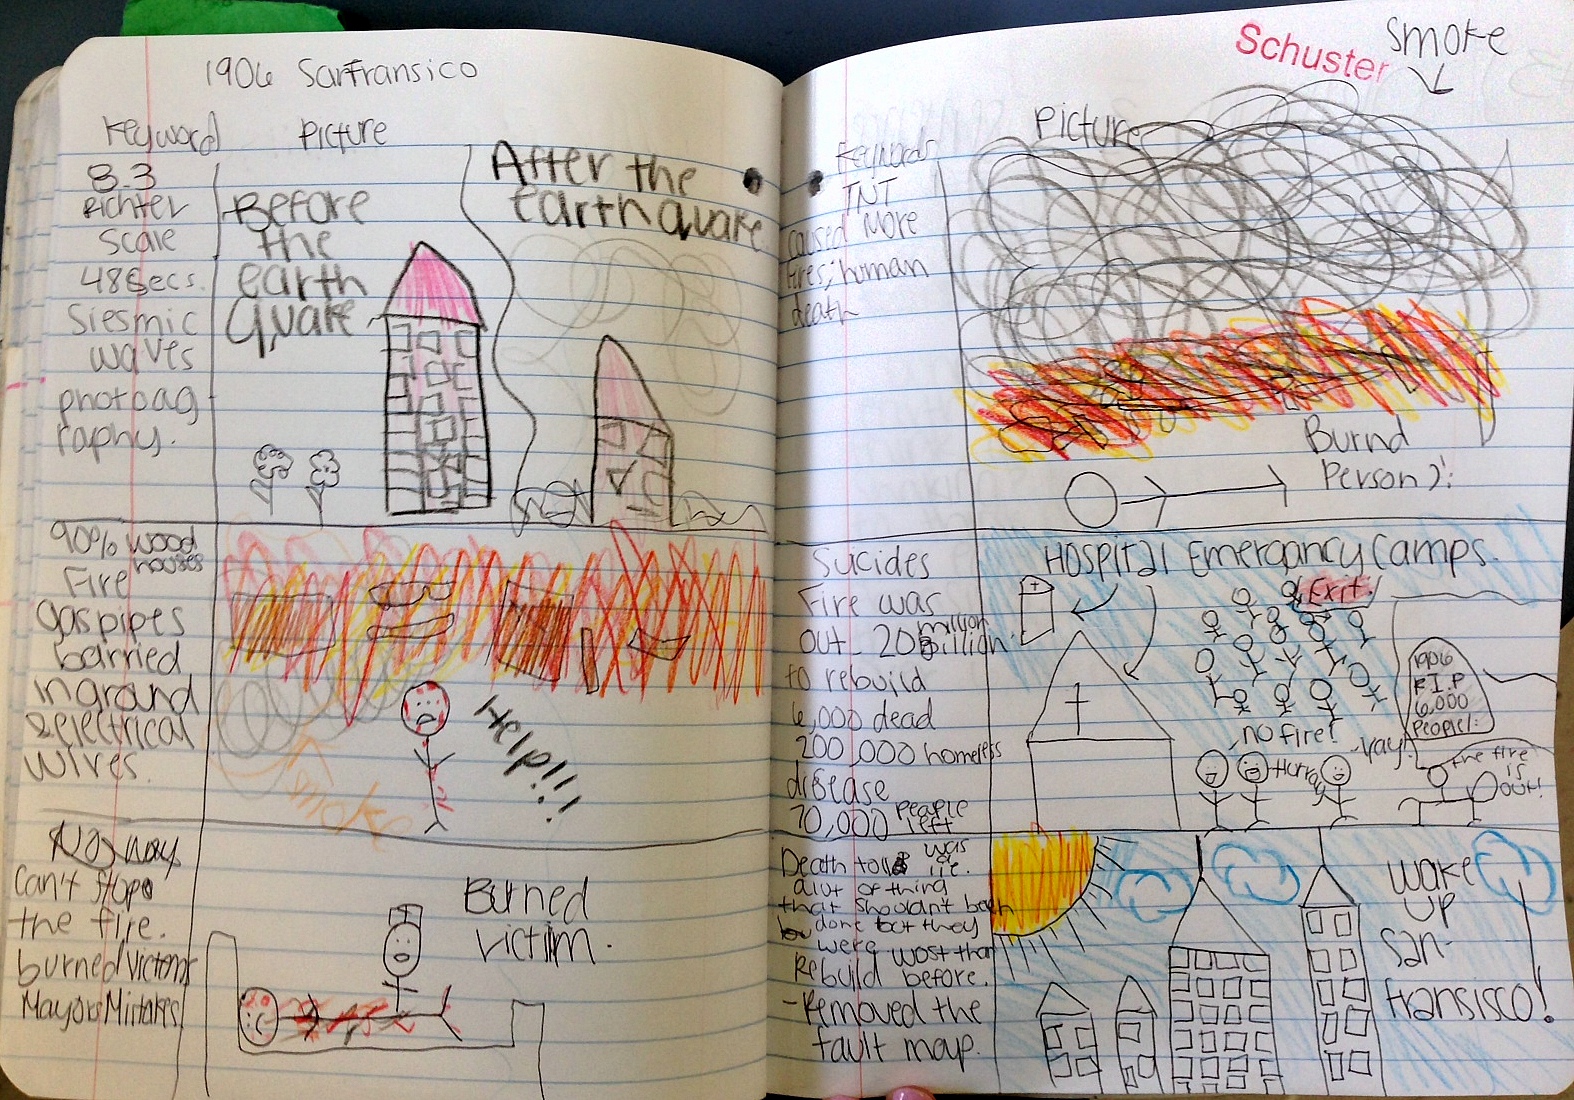 1906 Sanfransico
Keyword
Picture
8.3
Richter
Scale
48secs.
Siesmic
waves
photoag
raphy.
Before
the
earth
Quake
After the
Earthquake
90% wood
houses
Fire
gas pipes
barried
in grand
& electrical
wires.
Help!!!
smoke
No way
Can't stop
the fire.
burned victoms
Mayors Mistakes
Burned
victim.
Schuster
Smoke
Keywords
Picture
TNT
caused more
fires, human
death
Burnd
Person ):
Suicides
Fire was
out 20 million
to rebuild
6,000 dead
200,000 homeless
disease
70,000 people
left
Hospital Emergancy Camps.
Exit!
1906
R.I.P
6,000
People!:
no fire!
Hurray
Yay!
the fire
is
out!
Death toll was
a lie.
alot of thing
that shouldnt been
done but they
were wost than
Rebuild before.
-Removed the
fault map.
wake
up
san-
fransisco!